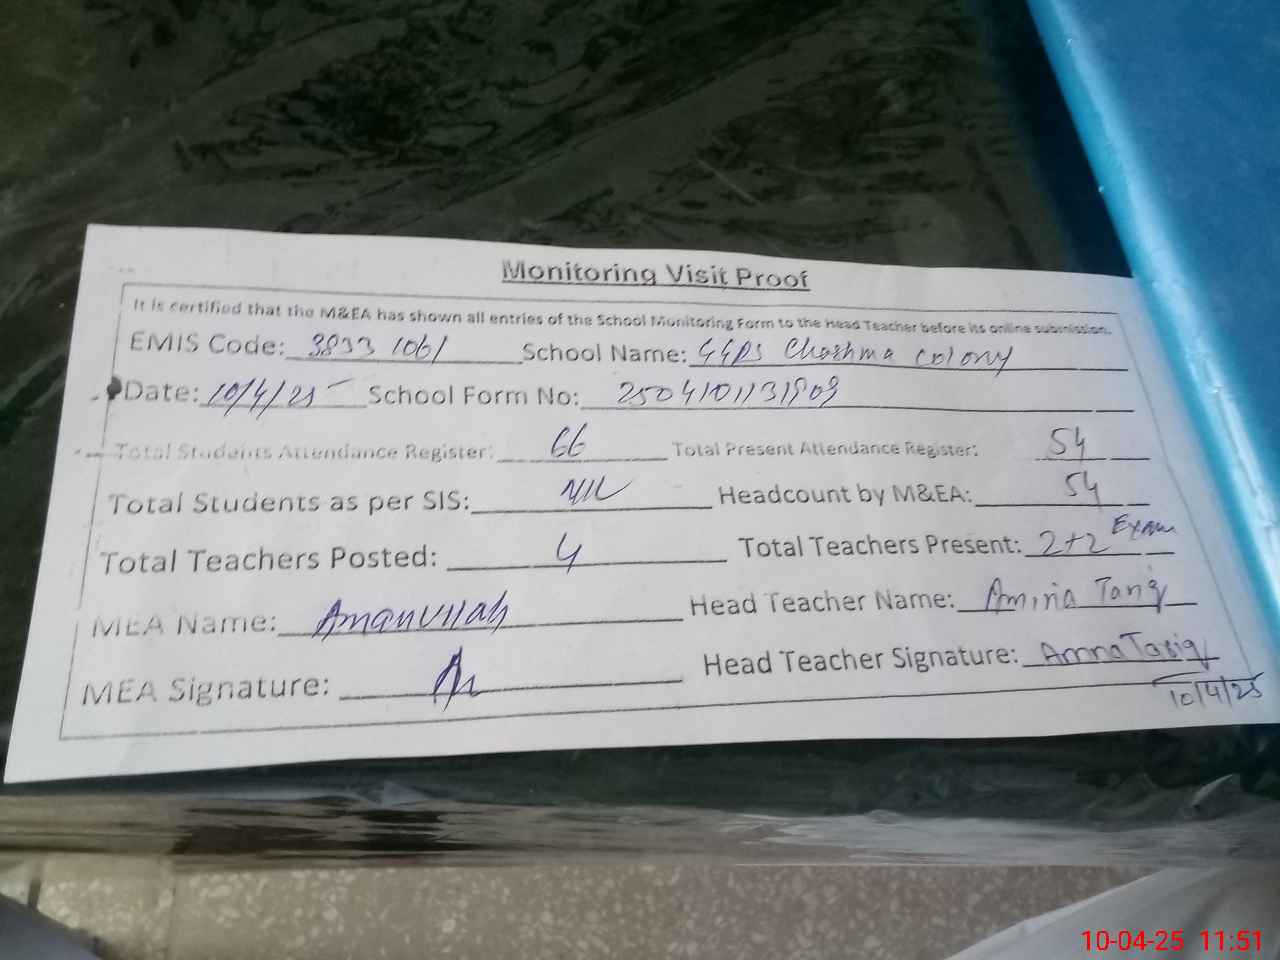 Monitoring Visit Proof
It is certified that the M&EA has shown all entries of the School Monitoring Form to the Head Teacher before its online submission.
EMIS Code: 3833 1061 School Name: GGPS Chashma colony
Date: 10/4/25 School Form No: 2504101131909
Total Students Attendance Register: 66 Total Present Attendance Register: 54
Total Students as per SIS: Nil Headcount by M&EA: 54
Total Teachers Posted: 4 Total Teachers Present: 2+2 Exam
MEA Name: Amanullah Head Teacher Name: Amina Tariq
MEA Signature: Head Teacher Signature: Amna Tariq
10/4/25
10-04-25 11:51